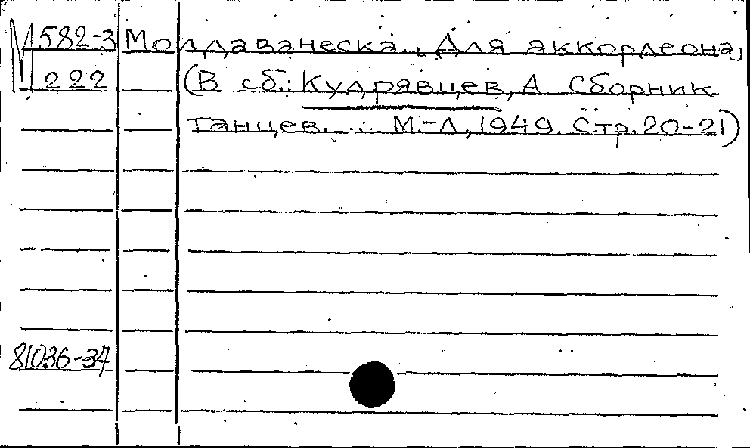 М582-3 Молдаванеска. Для аккордеона,
1222 (В сб.: Кудрявцев, А. Сборник
танцев... М.-Л, 1949. Стр. 20-21)
81036-34